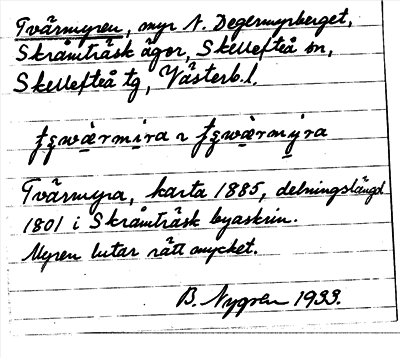 Tvärmyren, myr N. Degermyrberget,
Skråmträsk ägor, Skellefteå sn,
Skellefteå tg, Västerb. l.
Tvärmyra, karta 1885, delningslängd
1801 i Skråmträsk byaskrin.
Myren lutar rätt mycket.
B. Nygren 1933.